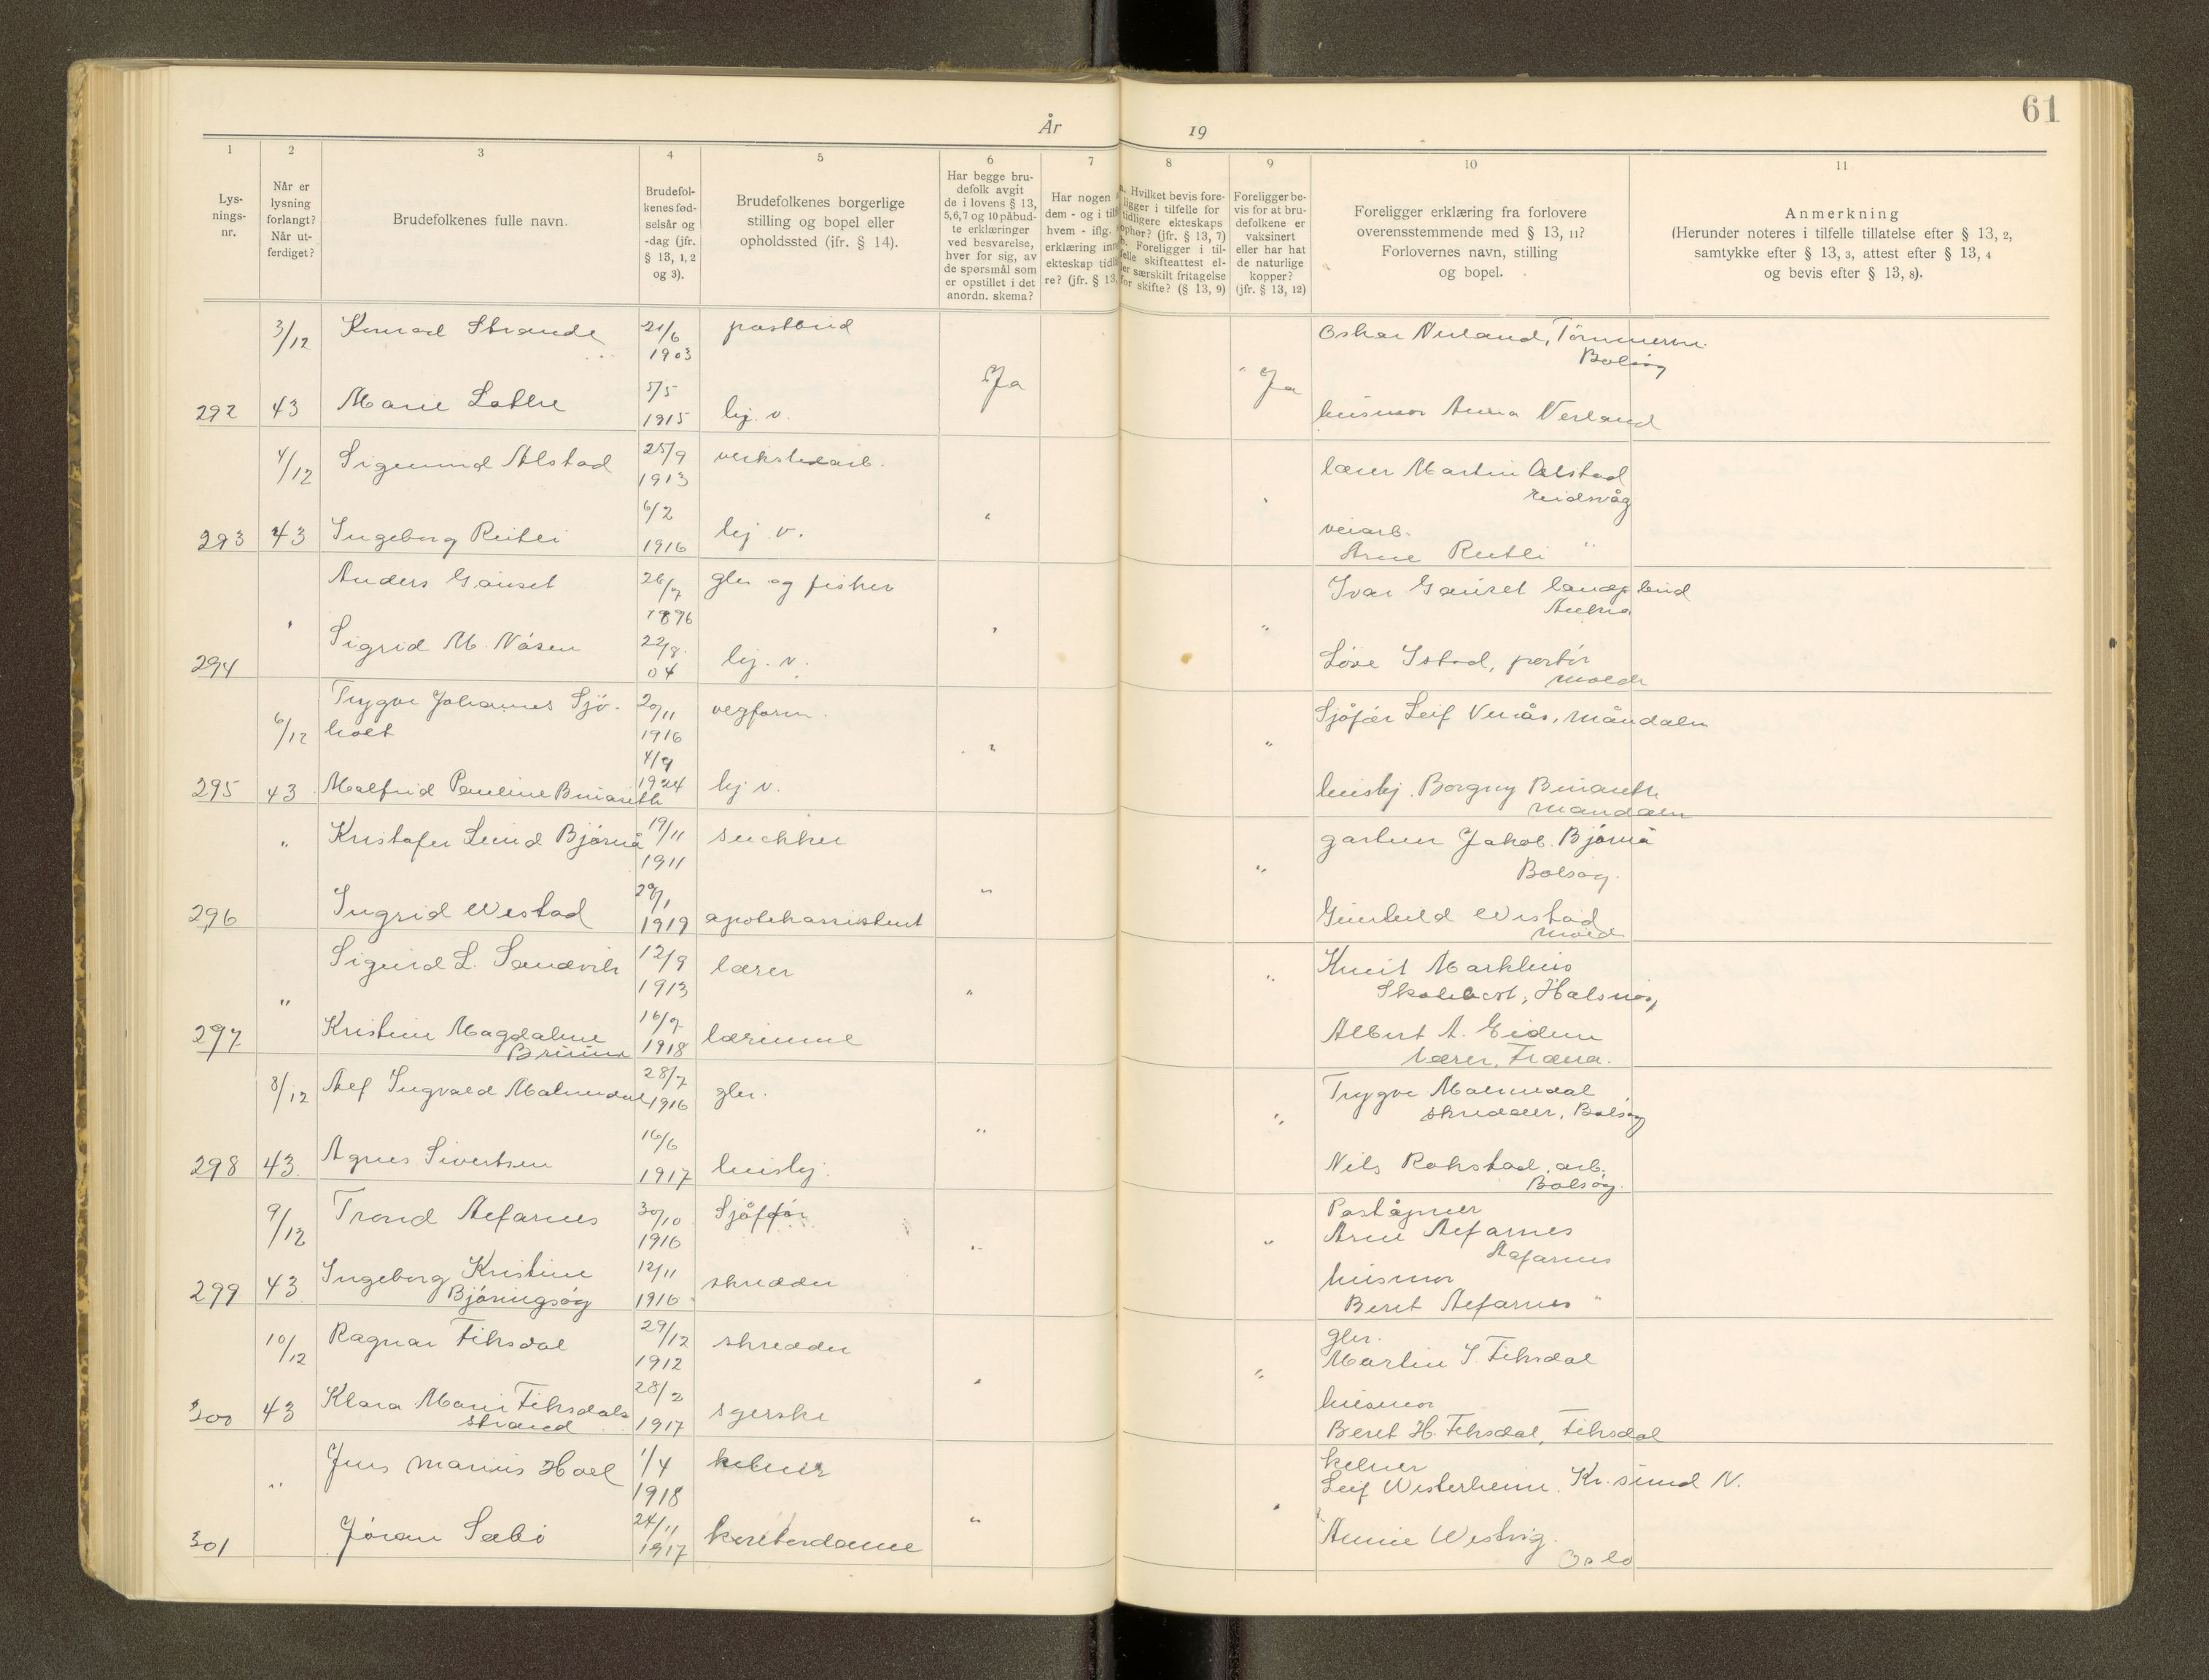 61
År 19
1 2 3 4 5 6 7 8 9 10 11
Lys-
nings-
nr.
Når er
lysning
forlangt?
Når ut-
ferdiget?
Brudefolkenes fulle navn.
Brudefol-
kenes fød-
selsår og
-dag (jfr.
§ 13, 1, 2
og 3).
Brudefolkenes borgerlige
stilling og bopel eller
opholdssted (ifr. § 14).
Har begge bru-
defolk avgit
de i lovens § 13,
5,6,7 og 10 påbud-
te erklæringer
ved besvarelse,
hver for sig, av
de spørsmål som
er opstillet i det
anordn. skema?
Har nogen
dem - og i til
hvem - iflg.
erklæring inn
ekteskap tidl
re? (jfr. § 13,
a. Hvilket bevis fore-
ligger i tilfelle for
tidligere ekteskaps
ophør? (jfr. § 13, 7)
b. Foreligger i til-
felle skifteattest el-
ler særskilt fritagelse
for skifte? (§ 13, 9)
Foreligger be-
vis for at bru-
defolkene er
vaksinert
eller har hat
de naturlige
kopper?
(jfr. § 13, 12)
Foreligger erklæring fra forlovere
overensstemmende med § 13, 11?
Forlovernes navn, stilling
og bopel.
Anmerkning
(Herunder noteres i tilfelle tillatelse efter § 13, 2,
samtykke efter § 13, 3, attest efter § 13, 4
og bevis efter § 13, 8).
3/12 Konrad Strande 21/6 1903 postbud Oskar Nerland, Tømmerm.
Bolsøy
Ja Ja
292 43 Marie 5/5 1915 hj. v. husmor Anna Nerland
4/12 Sigmund Alstad 25/9 1913 verkstedarb. lærer Martin Alstad
Eidsvåg
293 43 Ingeborg Reitli 6/2 1916 hj. v. " veiarb.
Arne Reitli "
Anders Gauset 26/7 1896 gbr og fisker Ivar Gauset landp.bud
Aukra
294 " Sigrid M. Nåsen 22/8 04 hj. v. " " Istad, portør
Molde
6/12 Trygve Johannes Sjø-
holt 20/11 1916 vegform. Sjåfør Leif Venås, Måndalen
" "
295 43 Malfrid Pauline 4/9 1924 hj v. hushj. Borgny
Måndalen
" Kristofer Lund Bjørnå 19/11 1911 snekker gartner Jakob Bjørnå
Bolsøy.
" "
296 Ingrid Westad 29/1 1919 apotekassistent Gunhild Westad
Molde
Sigurd L. Sandvik 12/9 1913 lærer Knut Markhus
Skolebest, Halsnøy,
" " "
297 Kristine Magdalene
Bruun 16/7 1918 lærerinne Albert A. Eidem
lærer, Fræna.
8/12 Alf Ingvald Malmedal 28/7 1916 gbr. Trygve Malmedal
skredder, Bolsøy
" "
298 43 Agnes Sivertsen 16/6 1917 hushj. Nils Rokstad, arb.
Bolsøy.
9/12 Trond Alfarnes 30/10 1916 Sjåfør Poståpner
Arne Alfarnes
Alfarnes
" "
299 43 Ingeborg Kristine
Bjørnungsøy 12/11 1916 skredder husmor
Beret Alfarnes "
10/12 Ragnar Fiksdal 29/12 1912 skredder gbr.
Martin I. Fiksdal
" "
300 43 Klara Marie Fiksdals
strand 28/2 1917 syerske husmor
Beret H. Fiksdal, Fiksdal
" Jens Marius Hoel 1/4 1918 kelner kelner
Leif Westerheim. Kr.sund N.
" "
301 Jóran Sæbö 24/11 1917 kontordame Annie Westvig.
Oslo